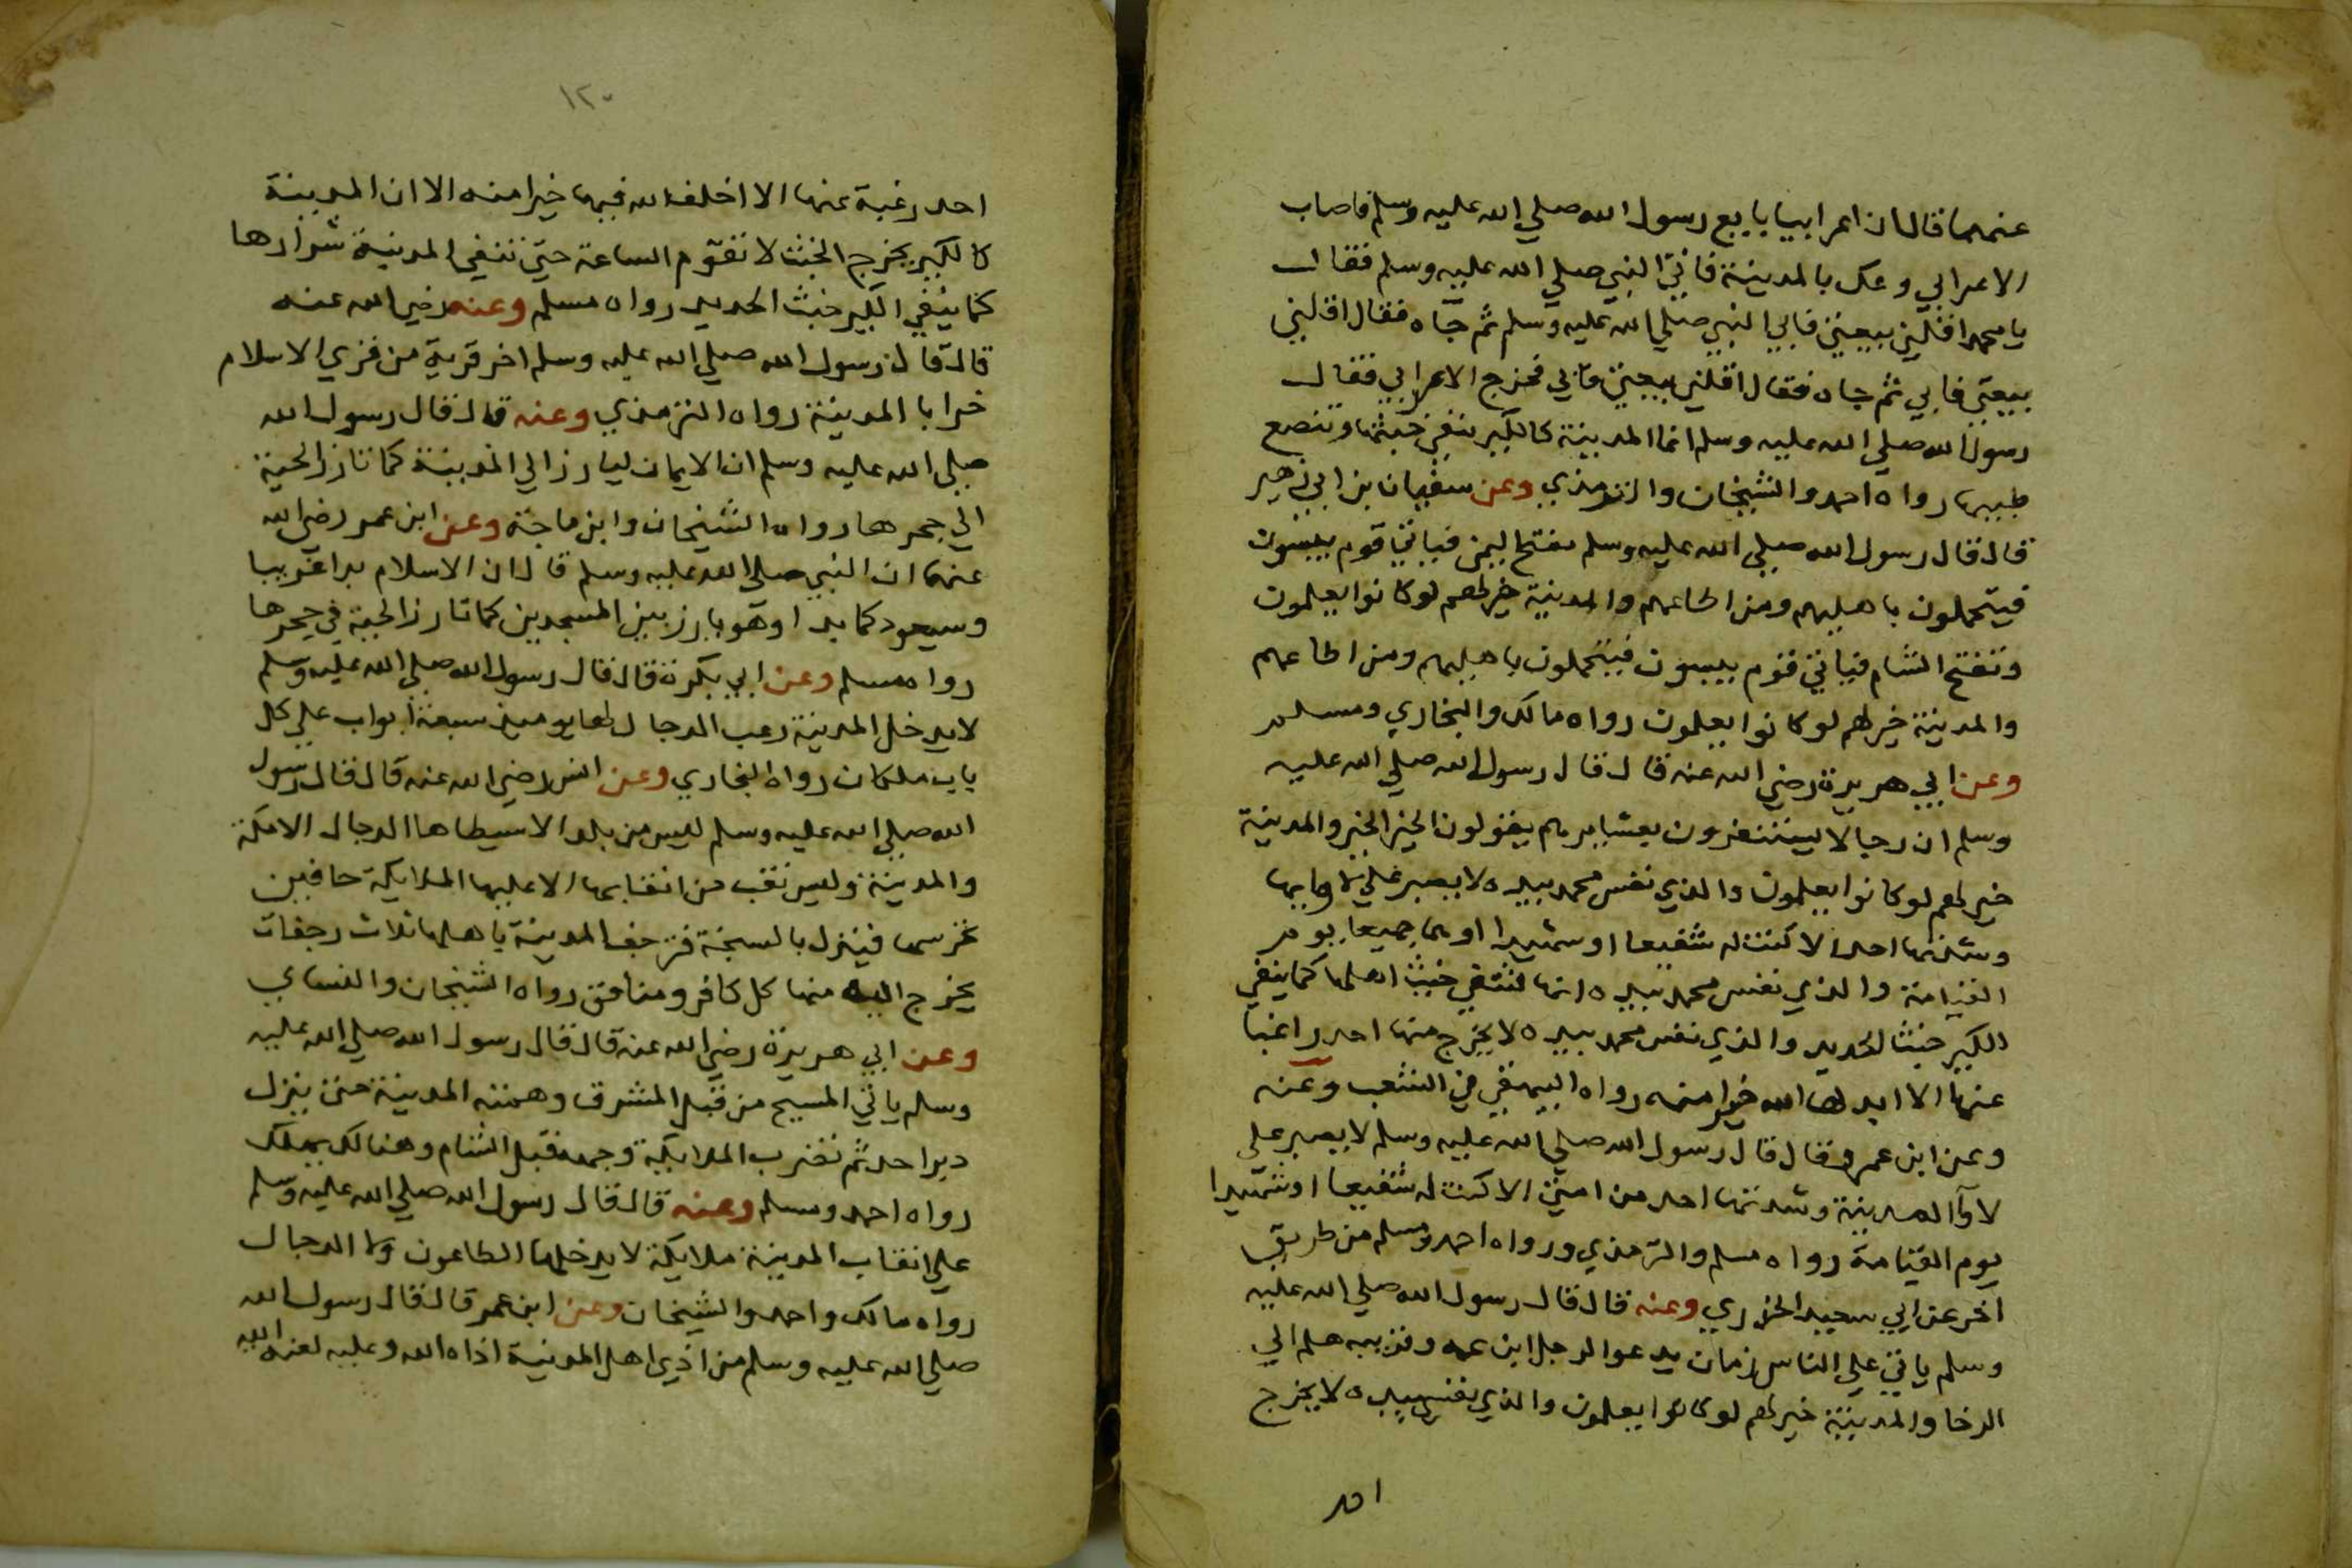 عنهما قال ان اعرابيا بايع رسول الله صلي الله عليه وسلم فاصاب
الاعرابي وعك بالمدينة فاتي النبي صلي الله عليه وسلم فقال
يا محمد اقلني بيعتي فابي النبي صلي الله عليه وسلم ثم جآه فقال اقلني
بيعتي فابي ثم جاه فقال اقلني بيعتي فابي فخرج الاعرابي فقال
رسول الله صلي الله عليه وسلم انما المدينة كالكير تنفي خبثها وتنصع
طيبها رواه احمد والشيخان والترمذي وعن سفيان بن ابي زهير
قال قال رسول الله صلي الله عليه وسلم تفتح اليمن فياتي قوم يبسون
فيتحملون باهليهم ومن اطاعهم والمدينة خير لهم لو كانوا يعلمون
وتفتح الشام فياتي قوم يبسون فيتحملون باهليهم ومن اطاعهم
والمدينة خير لهم لو كانوا يعلمون رواه مالك والبخاري ومسلم
وعن ابي هريرة رضي الله عنه قال قال رسول الله صلي الله عليه
وسلم ان رجالا يستنفرون بعشايرهم يقولون الخير الخير والمدينة
خير لهم لو كانوا يعلمون والذي نفس محمد بيده لا يصبر علي لاوايها
وشدتها احد الا كنت له شفيعا او شهيدا او هما جميعا يوم
القيامة والذي نفس محمد بيده انها لتنفي خبث اهلها كما ينفي
الكير خبث الحديد والذي نفس محمد بيده لا يخرج منها احد راغبا
عنها الا ابدلها الله خيرا منه رواه البيهقي في الشعب وعنه
وعن ابن عمر قال قال رسول الله صلي الله عليه وسلم لا يصبر علي
لاوآ المدينة وشدتها احد من امتي الا كنت له شفيعا او شهيدا
يوم القيامة رواه مسلم والترمذي ورواه احمد ومسلم من طريق
اخر عن ابي سعيد الخدري وعنه قال قال رسول الله صلي الله عليه
وسلم ياتي علي الناس زمان يدعوا الرجل ابن عمه وقريبه هلم الي
الرخا والمدينة خير لهم لو كانوا يعلمون والذي نفسي بيده لا يخرج
١٢٠
احد رغبة عنها الا اخلف الله فيها خيرا منه الا ان المدينة
كالكير يخرج الخبث لا تقوم الساعة حتي تنفي المدينة شرارها
كما ينفي الكير خبث الحديد رواه مسلم وعنه رضي الله عنه
قال قال رسول الله صلي الله عليه وسلم اخر قرية من قري الاسلام
خرابا المدينة رواه الترمذي وعنه قال قال رسول الله
صلي الله عليه وسلم ان الايمان ليارز الي المدينة كما تارز الحية
الي جحرها رواه الشيخان وابن ماجة وعن ابن عمر رضي الله
عنهما ان النبي صلي الله عليه وسلم قال ان الاسلام بدا غريبا
وسيعود كما بدا وهو يارز بين المسجدين كما تارز الحية في جحرها
رواه مسلم وعن ابي بكرة قال قال رسول الله صلي الله عليه وسلم
لا يدخل المدينة رعب الدجال لها يوميذ سبعة ابواب علي كل
باب ملكان رواه البخاري وعن انس رضي الله عنه قال قال رسول
الله صلي الله عليه وسلم ليس من بلد الا سيطاها الدجال الا مكة
والمدينة وليس نقب من انقابها الا عليها الملايكة حافين
تحرسها فينزل بالسبخة فترجف المدينة باهلها ثلاث رجفات
يخرج اليه منها كل كافر ومنافق رواه الشيخان والنساي
وعن ابي هريرة رضي الله عنه قال قال رسول الله صلي الله عليه
وسلم ياتي المسيح من قبل المشرق وهمته المدينة حتي ينزل
دبر احد ثم تضرب الملايكة وجهه قبل الشام وهنالك يهلك
رواه احمد ومسلم وعنه قال قال رسول الله صلي الله عليه وسلم
علي انقاب المدينة ملايكة لا يدخلها الطاعون ولا الدجال
رواه مالك واحمد والشيخان وعن ابن عمر قال قال رسول الله
صلي الله عليه وسلم من اذي اهل المدينة اذاه الله وعليه لعنة الله